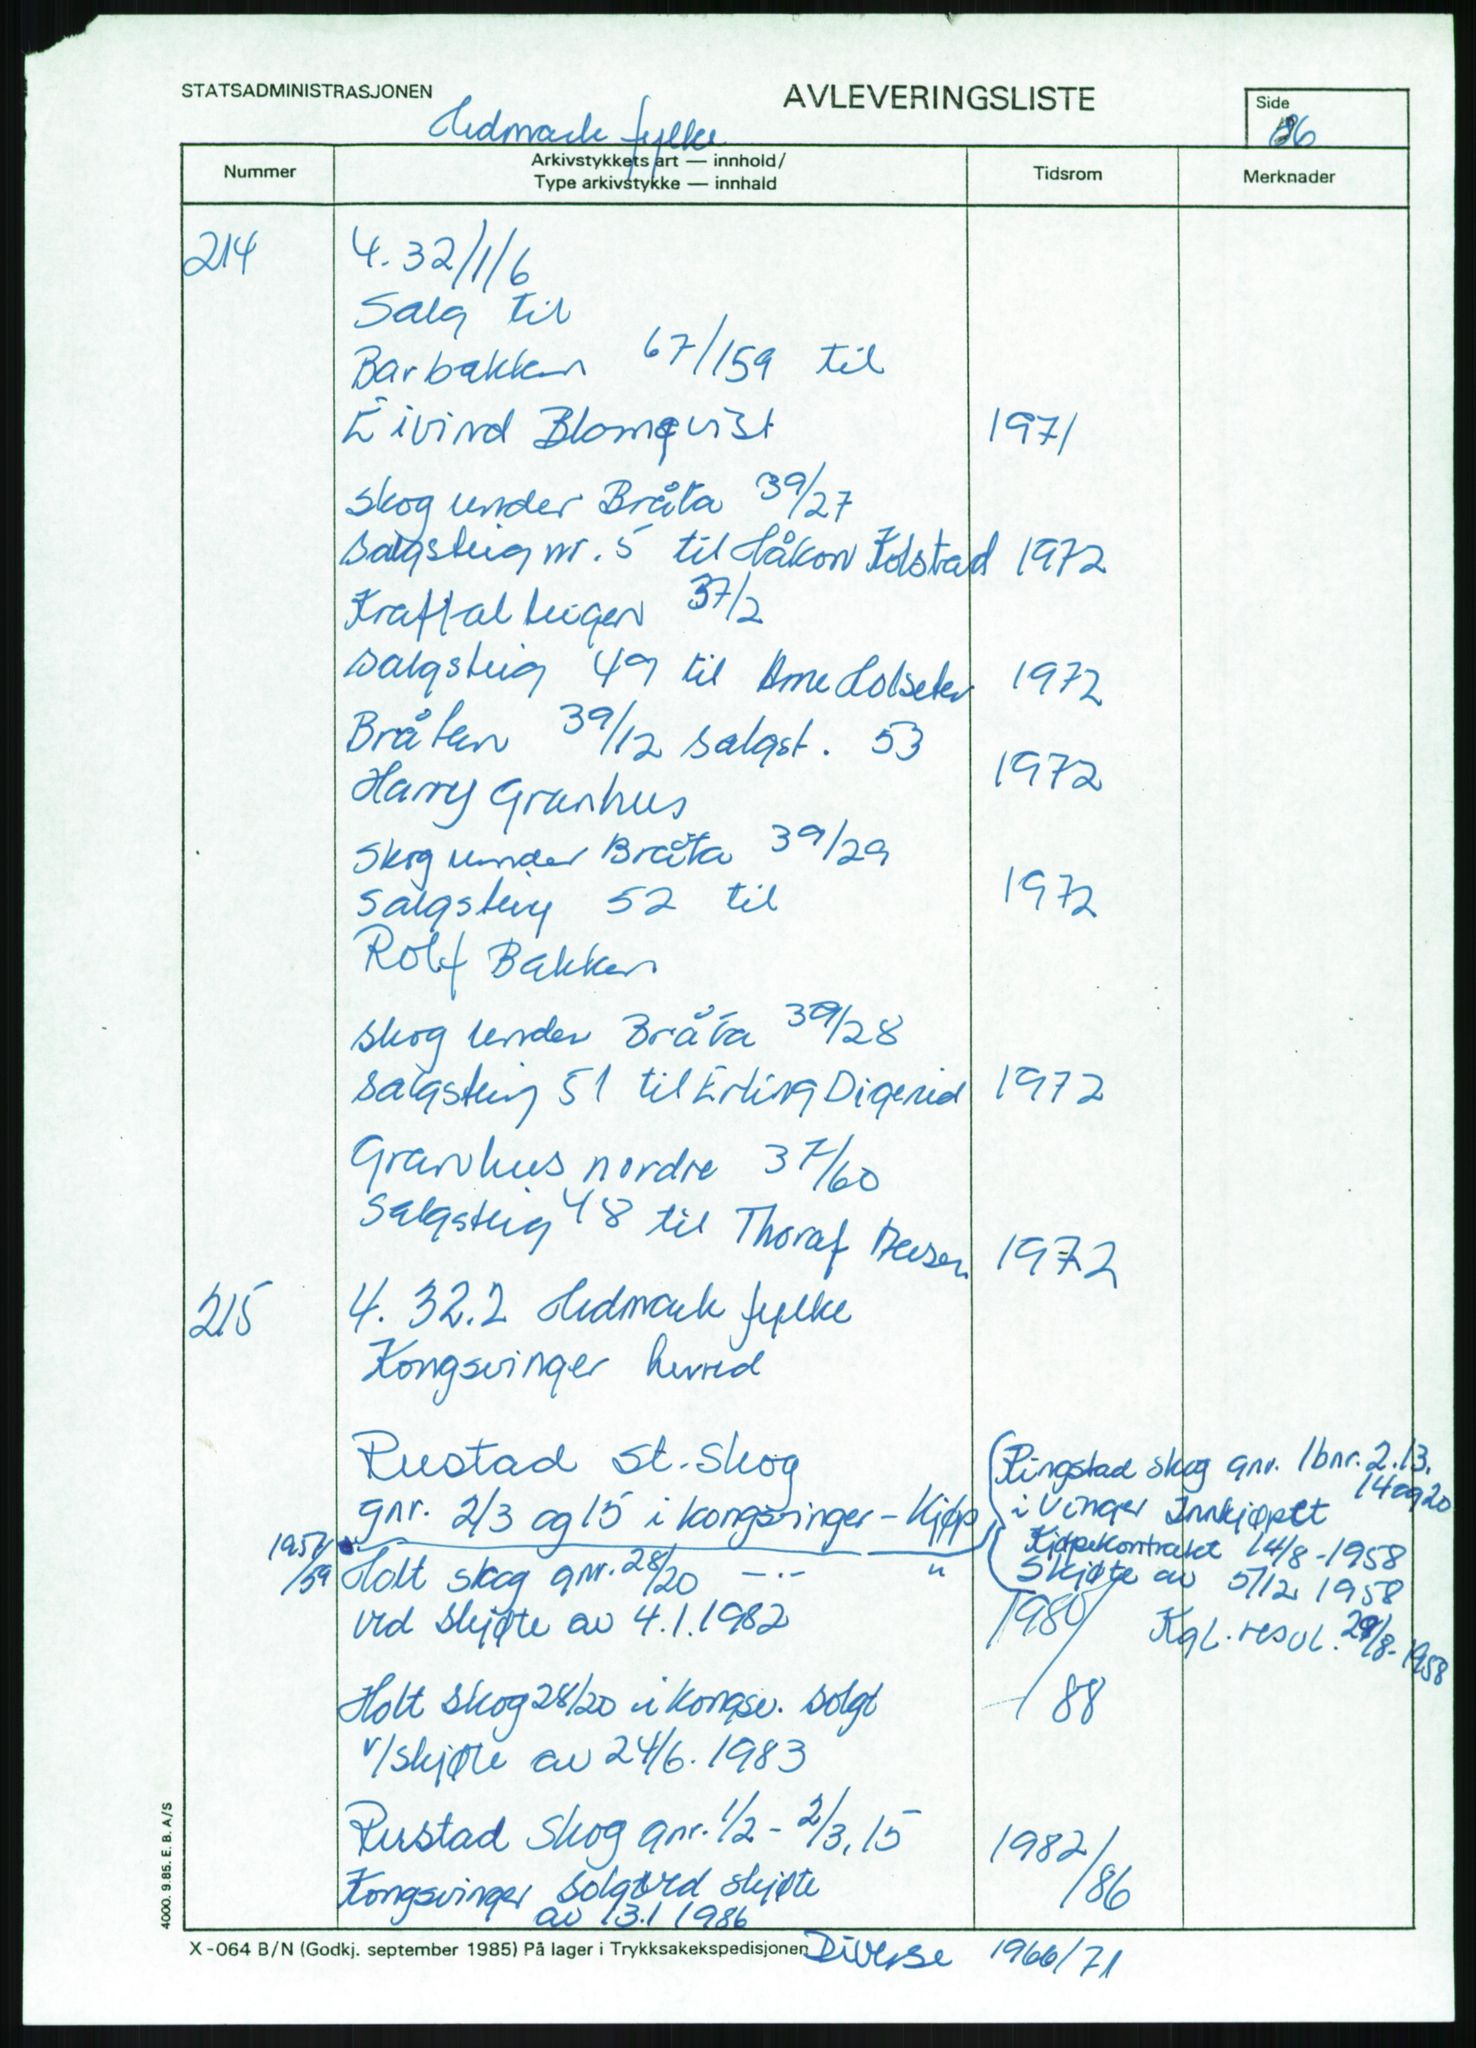 STATSADMINISTRASJONEN
AVLEVERINGSLISTE
Side
86
Hedmark fylke
Nummer
Arkivstykkets art — innhold/
Type arkivstykke — innhald
Tidsrom
Merknader
214
4. 32/1/6
Salg til
Barbakken 67/159 til
Eivind Blomqvist 1971
Skog under Bråta 39/27
Salgsteig nr. 5 til Håkon Kolstad 1972
37/2
Salgsteig 49 til Arne Holseter 1972
Bråten 39/12 salgst. 53
Harry Granhus 1972
Skog under Bråta 39/29
Salgsteig 52 til 1972
Rolf Bakken
Skog under Bråta 39/28
Salgsteig 51 til Erling Digerud 1972
Granhus nordre 37/60
Salgsteig 48 til Thoraf 1972
215
4. 32.2 Hedmark fylke
Kongsvinger herred
Rustad st. skog
gnr. 2/3 og 15 i Kongsvinger - Kjøp
Ringstad skog gnr. 1 bnr. 2. 13.
14 og 20
i Vinger Innkjøpt
Kjøpekontrakt 14/8-1958
Skjøte av 5/12 1958
Kgl. resol. 29/8-1958
1957/
/59
Holt skog gnr. 28/20 -..- "
ved skjøte av 4.1.1982 1980/
Holt skog 28/20 i Kongsv. solgt /88
v/skjøte av 24/6. 1983
Rustad skog gnr. 1/2 - 2/3, 15 1982/
Kongsvinger solgt ved skjøte /86
av 13.1 1986
4000. 9.85. E. B. A/S
X-064 B/N (Godkj. september 1985) På lager i Trykksakekspedisjonen
Diverse 1966/71